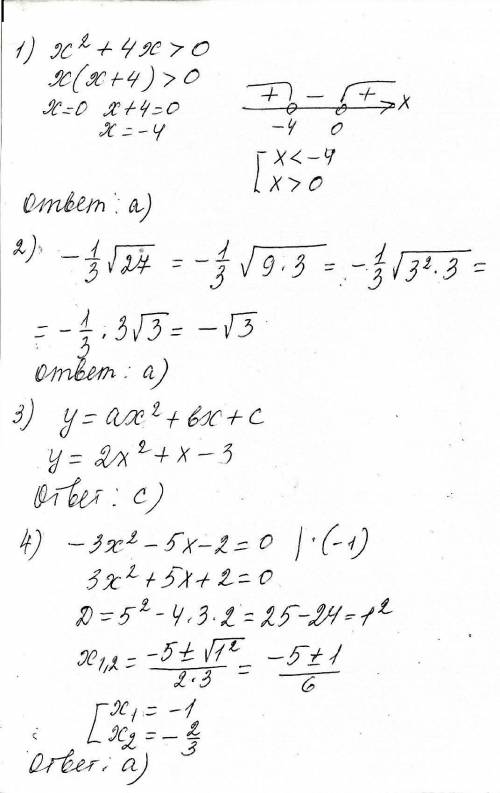 1) x² + 4x > 0
x(x+4) > 0
x=0 x+4=0
x = -4
+ - + x
-4 0
[ x < -4
x > 0
Ответ: а)
2) -1/3 √27 = -1/3 √(9·3) = -1/3 √(3²·3) =
= -1/3 · 3√3 = -√3
Ответ: а)
3) y = ax² + bx + c
y = 2x² + x - 3
Ответ: с)
4) -3x² - 5x - 2 = 0 |·(-1)
3x² + 5x + 2 = 0
D = 5² - 4·3·2 = 25 - 24 = 1²
x₁,₂ = (-5 ± √1²)/(2·3) = (-5 ± 1)/6
[ x₁ = -1
x₂ = -2/3
Ответ: а)